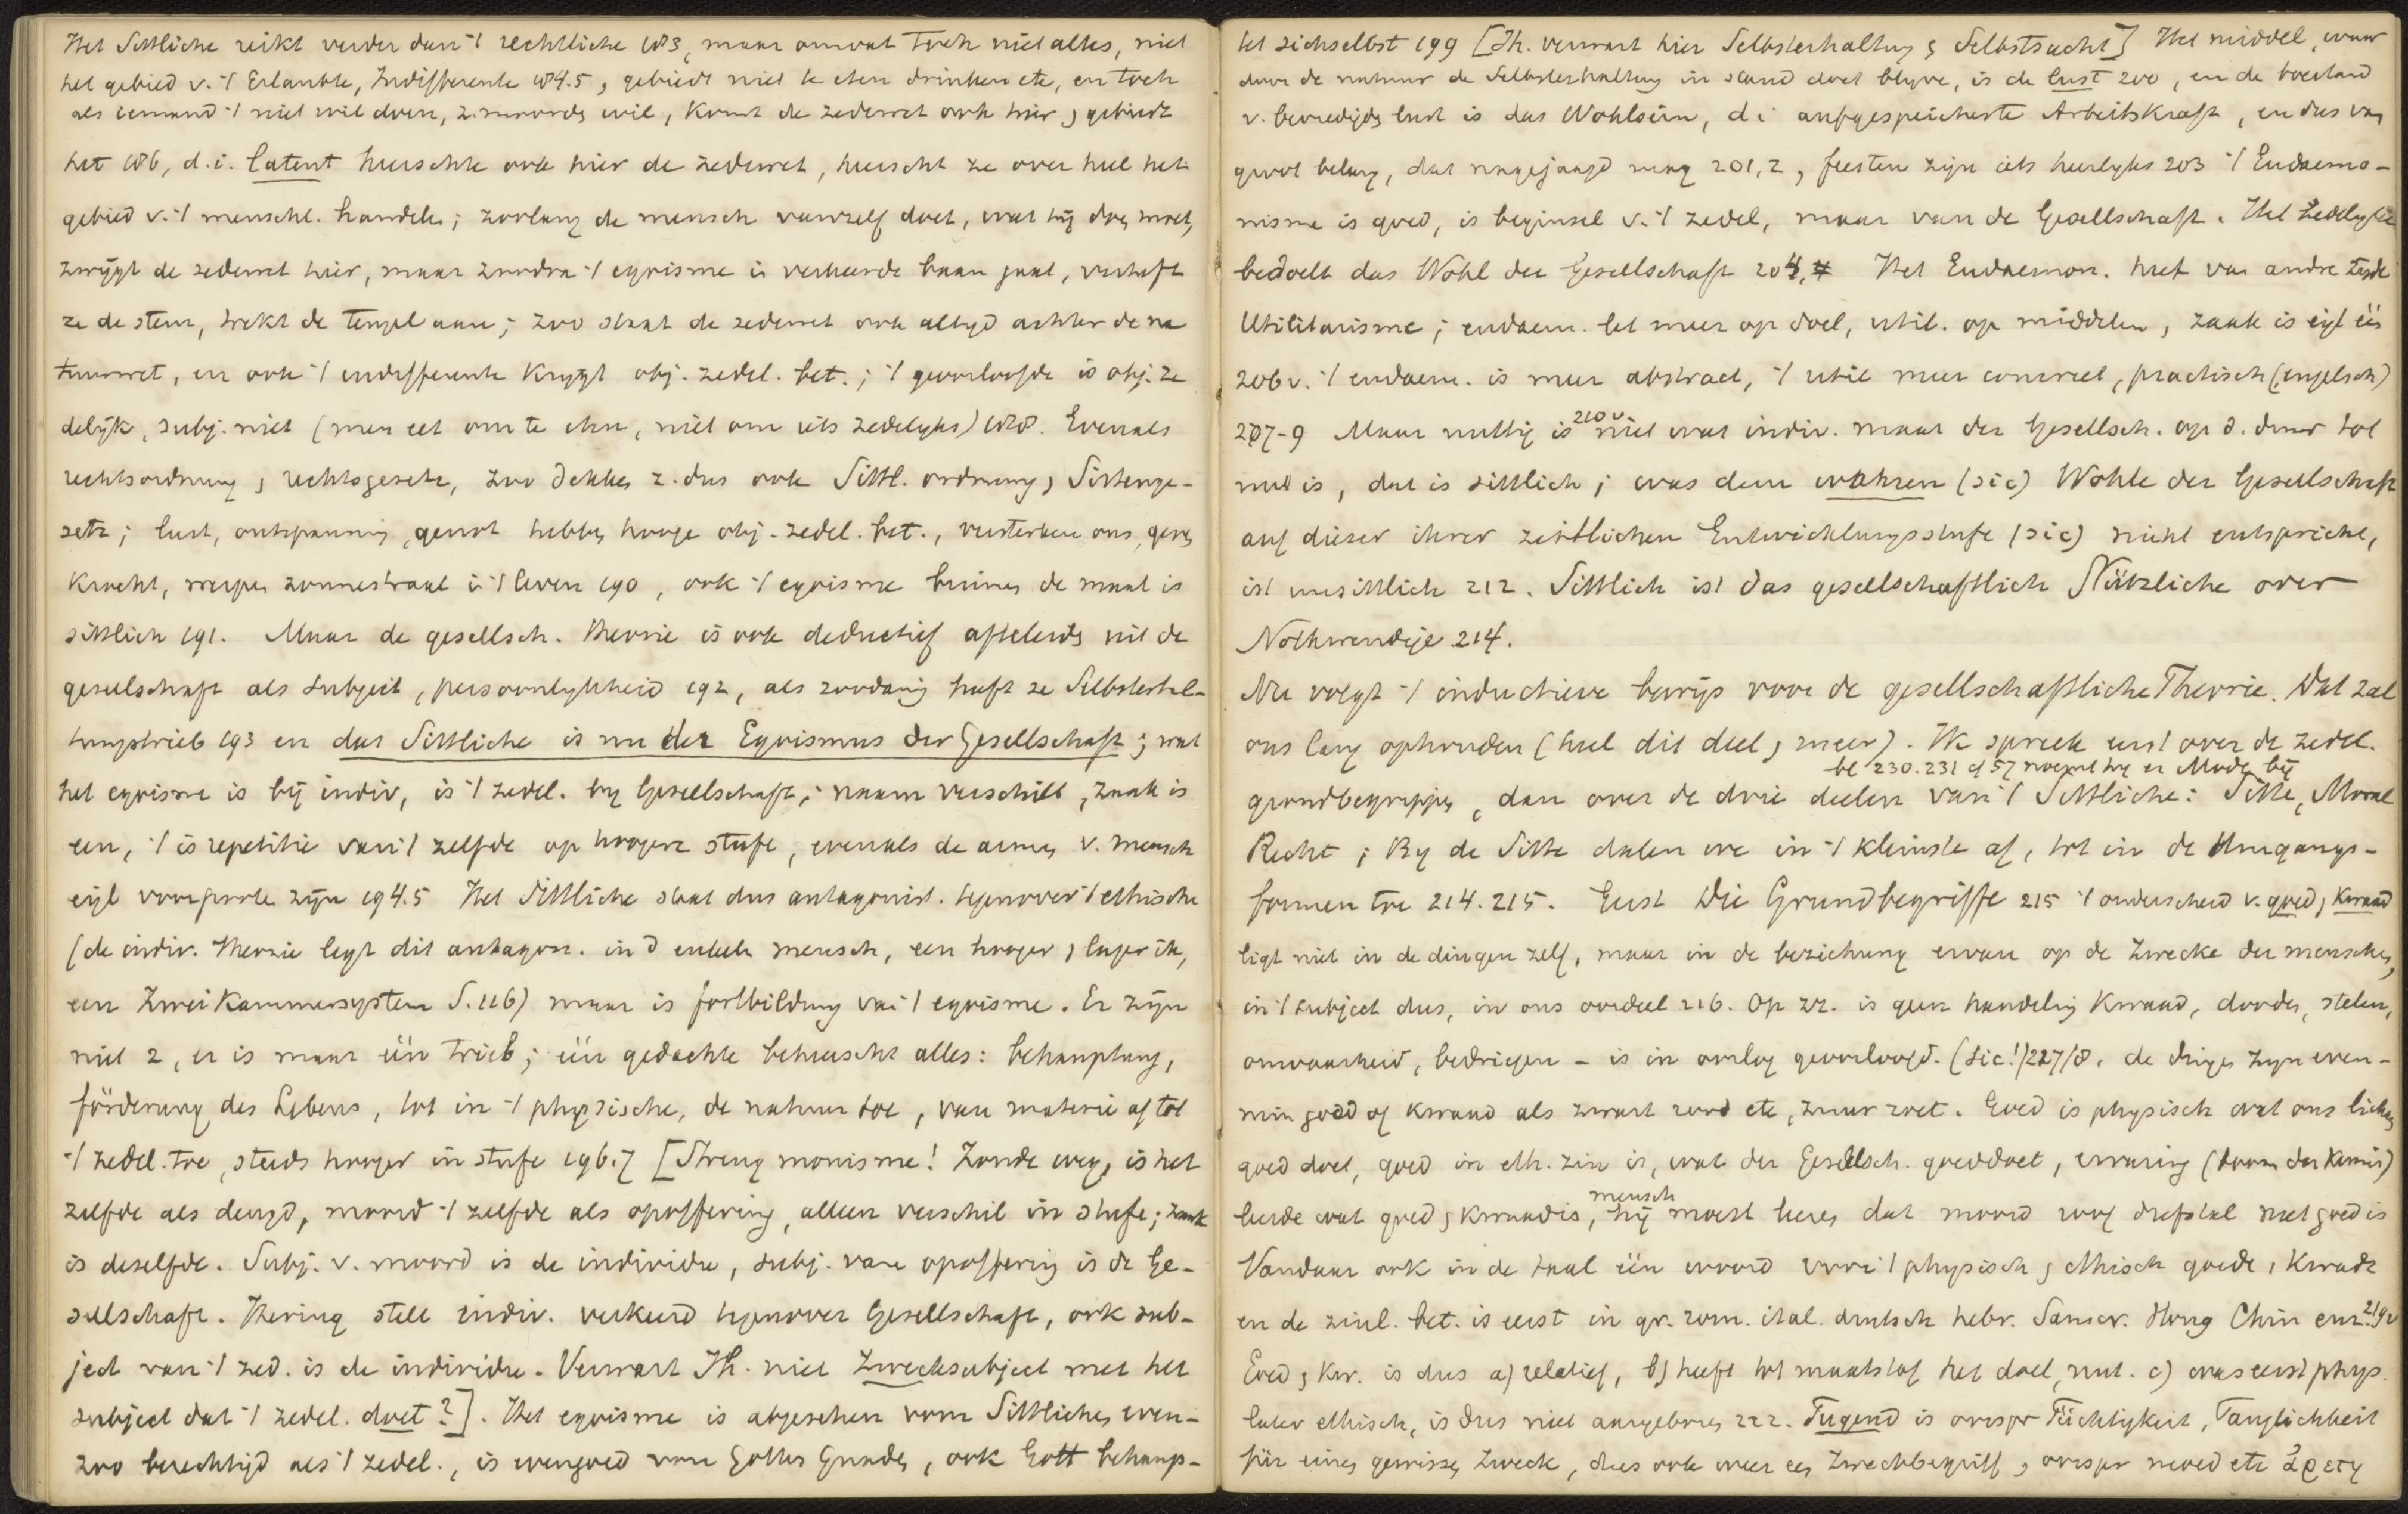 Het Sittliche reikt verder dan 't rechtliche 183, maar omvat toch niet alles, niet
het gebied v. 't Erlaubte, Indifferente 184.5, gebiedt niet te eten drinken etc, en toch
als iemand 't niet wil doen, z. moorden wil, komt de zedewet ook hier, gebiedt
het 186, d.i. latent heerschte ook hier de zedewet, heerscht ze over heel het
gebied v. 't menschl. handelen; zoolang de mensch vanzelf doet, wat hij doen moet,
zwijgt de zedewet hier, maar zoodra 't egoisme in verkeerde baan gaat, verheft
ze de stem, trekt de teugel aan; zoo staat de zedewet ook altyd achter de na
tuurwet, en ook 't indifferente krygt obj. zedel. bet.; 't geoorloofde is obj. ze
delijk, subj. niet (men eet om te eten, niet om iets zedelyks) 188. Evenals
rechtsordnung, rechtsgesetz, zoo dekken z. dus ook Sittl. ordnung, Sittenge-
setz; lust, ontspanning, genot hebben hooge obj. zedel. bet., versterken ons, geven
kracht, werpen zonnestraal in 't leven 190, ook 't egoisme binnen de maat is
sittlich 191. Maar de gesellsch. theorie is ook deductief afteleiden uit de
gesellschaft als subject, persoonlykheid 192, als zoodanig heeft ze Selbsterhal-
tungstrieb 193 en das Sittliche is nu der Egoismus der Gesellschaft; wat
het egoisme is bij indiv, is 't zedel. by Gesellschaft; naam verschilt, zaak is
een, 't is repetitie van 't zelfde op hoogere stufe, evenals de armen v. mensch
eigl voorpooten zijn 194.5 Het Sittliche staat dus antagonist. tegenover 't ethische
(de indiv. theorie legt dit antagon. in d enkele mensch, een hooger, lager ik,
een Zweikammersystem S.116) maar is fortbildung van 't egoisme. Er zijn
niet 2, er is maar één trieb; één gedachte beheerscht alles: behauptung,
förderung des Lebens, tot in 't physische, de natuur toe, van materie af tot
't zedel. toe, steeds hooger in stufe 196.7 [Streng monisme! Zonde weg, is het
zelfde als deugd, moord 't zelfde als opoffering, alleen verschil in stufe; zaak
is deselfde. Subj. v. moord is de individu, subj. van opoffering is de Ge-
sellschaft. Ihering stelt indiv. verkeerd tegenover Gesellschaft, ook sub-
ject van 't zed. is de individu. Verwart Ih. niet Zwecksubject met het
subject dat 't zedel. doet?]. Het egoisme is abgesehen vom Sittlichen, even-
zoo berechtigd als 't zedel., is evengoed von Gottes Gnaden, ook Gott behaup-
tet sichselbst 199 [Ih. verwart hier Selbsterhaltung, Selbstsucht] Het middel, waar
door de natuur de Selbsterhaltung in stand doet blyve, is de lust 200, en de toestand
v. bevredigden lust is das Wohlsein, d.i aufgespeicherte Arbeitskraft, en dus van
groot belang, dat nagejaagd mag 201,2, feesten zijn iets heerlyks 203 't Eudaemo-
nisme is goed, is beginsel v. 't zedel, maar van de Gesellschaft. Het Zedelyke
bedoelt das Wohl der Gesellschaft 204. Het Eudaemon. heet van andre zyde
Utilitarisme; eudaem. let meer op doel, util. op middelen, zaak is eigl één
206v. 't eudaem. is meer abstract, 't util meer concreet, practisch (engelsch)
207-9 Maar nuttig is 210v niet wat indiv. maar der Gesellsch. op d. duur tot
nut is, dat is sittlich; was dem wahren (sic) Wohle der Gesellschaft
auf dieser ihrer zeitlichen Entwicklungsstufe (sic) nicht entspricht,
ist unsittlich 212. Sittlich ist das gesellschaftlich Nützliche oder
Nothwendige 214.
Nu volgt 't inductieve bewijs voor de gesellschaftliche Theorie. Dat zal
ons lang ophouden (heel dit deel, meer). Ik spreek eerst over de zedel.
bl 230.231 cf 57 noemt hij er Mode bij
grondbegrippen, dan over de drie deelen van 't Sittliche: Sitte, Moral
Recht; By de Sitte dalen we in 't kleinste af, tot in de Umgangs-
formen toe 214.215. Eerst Die Grundbegriffe 215 't onderscheid v. goed, kwaad
ligt niet in de dingen zelf, maar in de beziehung ervan op de Zwecke der menschen,
in 't subject dus, in ons oordeel 216. Op zz. is geen handeling kwaad, dooden, stelen,
onwaarheid, bedriegen - is in oorlog geoorloofd. (sic!) 217/8. de dingen zyn even-
min goed of kwaad als zwart rood etc, zuur zoet. Goed is physisch wat ons lichaam
goed doet, goed in eth. zin is, wat der Gesellsch. goeddoet, ervaring
leerde wat goed, kwaad is, mensch hij moest leeren dat moord roof diefstal niet goed is
Vandaar ook in de taal één woord voor 't physisch, ethisch goede, kwade
en de zinl. bet. is eerst in gr. rom. ital. duitsch hebr. Sanscr. Hong Chin enz. 219v
Goed, kw. is dus a) relatief, b) heeft tot maatstaf het doel, nut. c) was eerst phys.
later ethisch, is dus niet aangeboren 222. Tugend is oorspr Tüchtigkeit, Tauglichkeit
für einen gewissen Zweck, dus ook weer een Zweckbegriff, oorspr moed etc ἀρετή